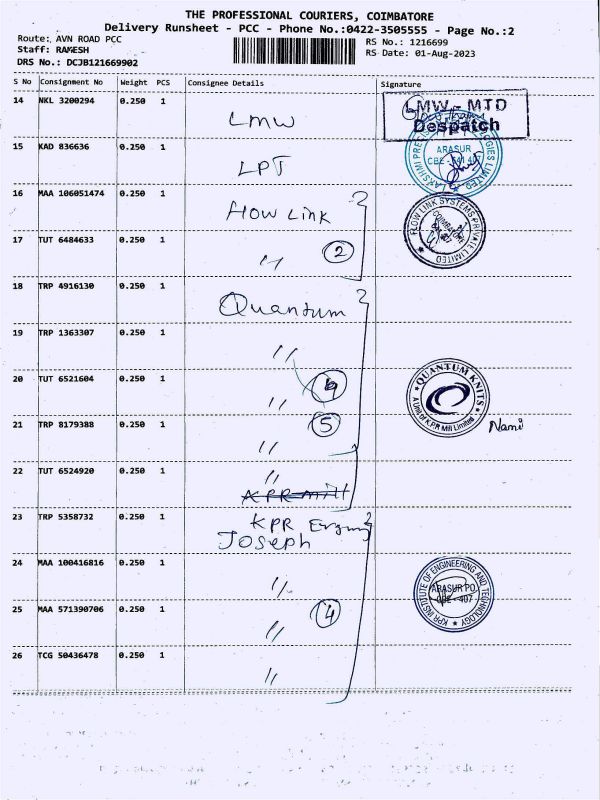 THE PROFESSIONAL COURIERS, COIMBATORE
Delivery Runsheet - PCC - Phone No.:0422-3505555 - Page No.:2
Route: AVN ROAD PCC
RS No.: 1216699
Staff: RAKESH
RS Date: 01-Aug-2023
DRS No.: DCJB121669902
S No Consignment No Weight PCS Consignee Details Signature
14 NKL 3200294 0.250 1 LMW
LMW - MTD
Despatch
15 KAD 836636 0.250 1 LPT
ARASUR
CBE - 641 407
16 MAA 106051474 0.250 1 Flow Link
FLOW LINK SYSTEMS PRIVATE LIMITED
COIMBATORE
17 TUT 6484633 0.250 1 〃 2
18 TRP 4916130 0.250 1 Quantum
19 TRP 1363307 0.250 1 〃
20 TUT 6521604 0.250 1 〃
QUANTUM KNITS
A Unit of K.P.R Mill Limited
21 TRP 8179388 0.250 1 〃 5
Nami
22 TUT 6524920 0.250 1 〃
KPR mill
23 TRP 5358732 0.250 1 KPR
Joseph
24 MAA 100416816 0.250 1 〃
KPR INSTITUTE OF ENGINEERING AND TECHNOLOGY
ARASUR PO.
CBE - 407
25 MAA 571390706 0.250 1 〃 4
26 TCG 50436478 0.250 1 〃